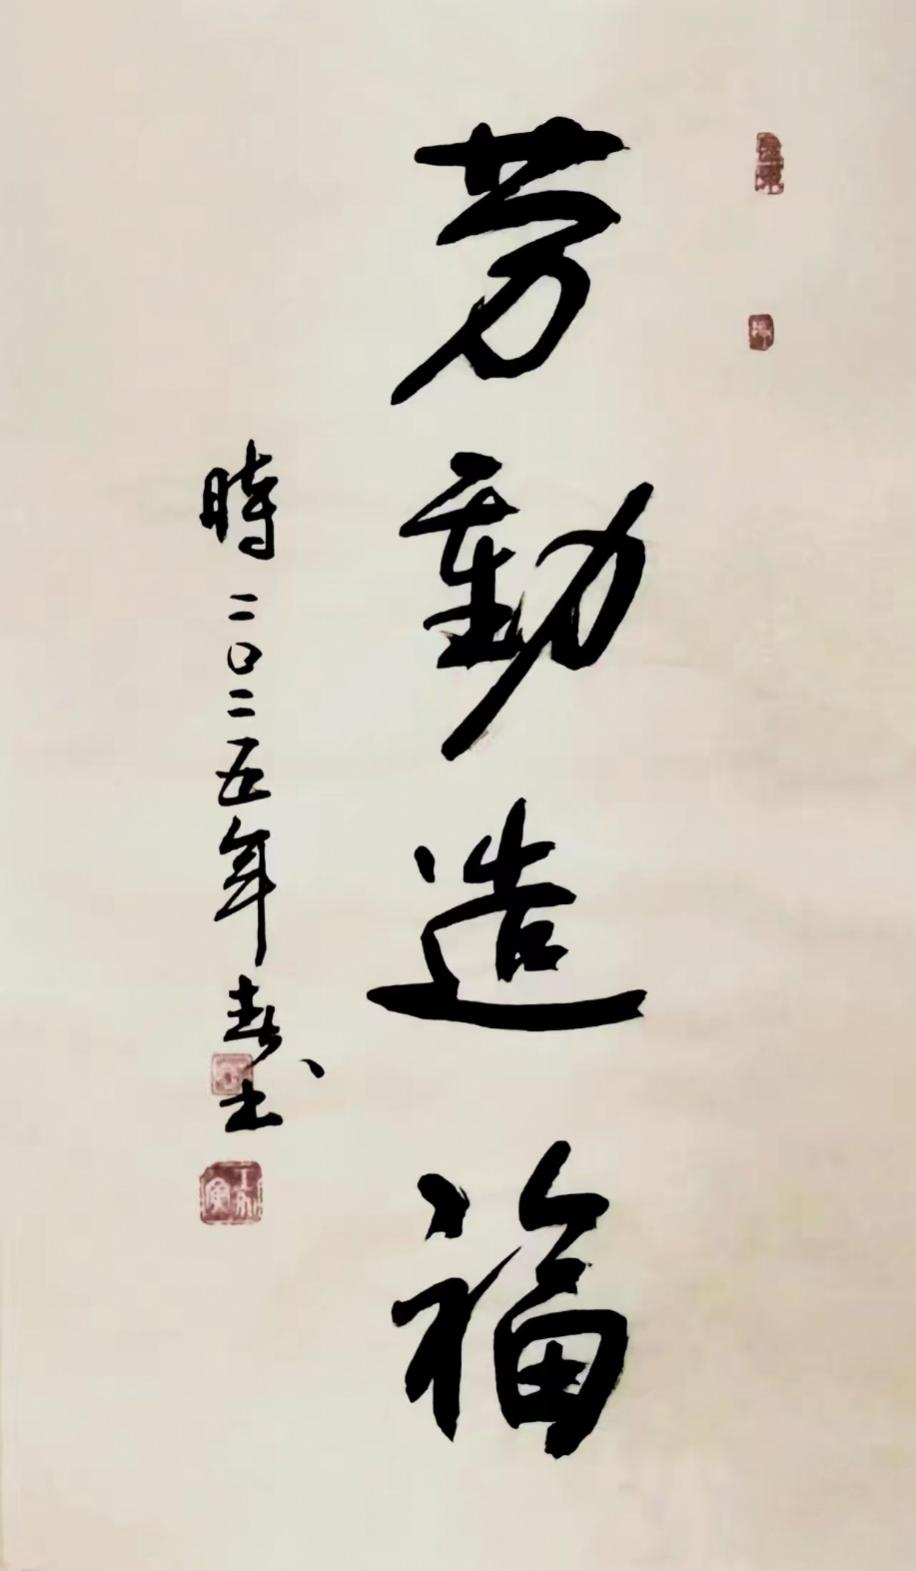 劳動造福
時二〇二五年春